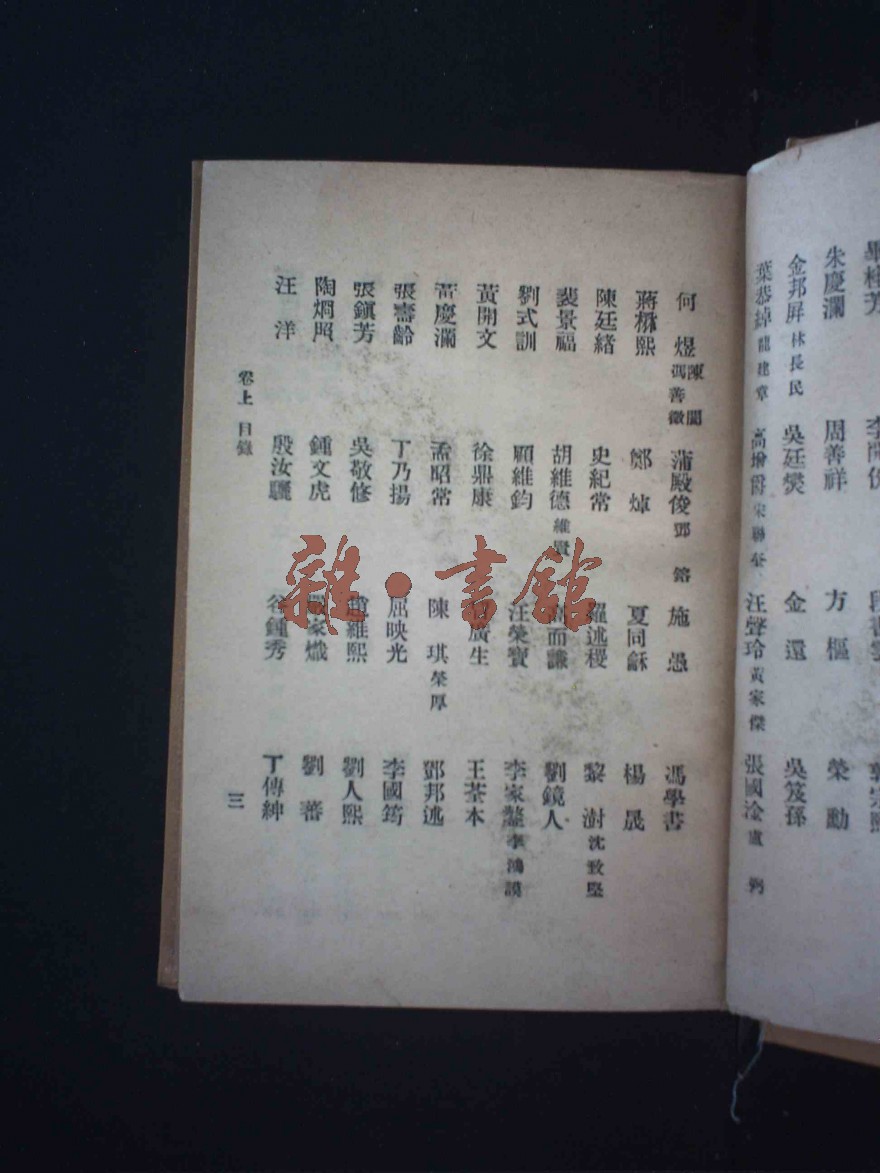 朱慶瀾 周善祥 方樞 榮勳
金邦屏 林長民 吳廷燮 金還 吳笈孫
葉恭綽 龍建章 高增爵 宋聯奎 汪聲玲 黃家傑 張國淦 盧弼
何煜 陳閩 馮善徵 蒲殿俊 鄧鎔 施愚 馮學書
蔣楙熙 鄭焯 夏同龢 楊晟
陳廷緒 史紀常 羅述稷 黎澍 沈致堅
裴景福 胡維德 維賢 而謙 劉鏡人
劉式訓 顧維鈞 汪榮寶 李家鏊 李鴻謨
黃開文 徐鼎康 廣生 王荃本
雷慶瀾 孟昭常 陳琪 榮厚 鄧邦述
張壽齡 丁乃揚 屈映光 李國筠
張鎮芳 吳敬修 趙維熙 劉人熙
陶烱照 鍾文虎 嚴家熾 劉蕃
汪洋 殷汝驪 谷鍾秀 丁傳紳
卷上 目錄 三
雜·書館